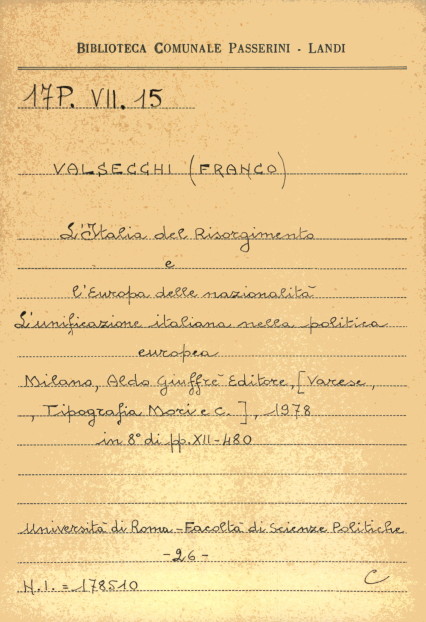 BIBLIOTECA COMUNALE PASSERINI - LANDI
17P. VII. 15
VALSECCHI (FRANCO)
L'Italia del Risorgimento
e
l'Europa delle nazionalità
L'unificazione italiana nella politica
europea
Milano, Aldo Giuffrè Editore, [Varese,
, Tipografia Mori e C. ], 1978
in 8° di pp. XII-480
Università di Roma - Facoltà di Scienze Politiche
-26-
N.I. = 178510
C